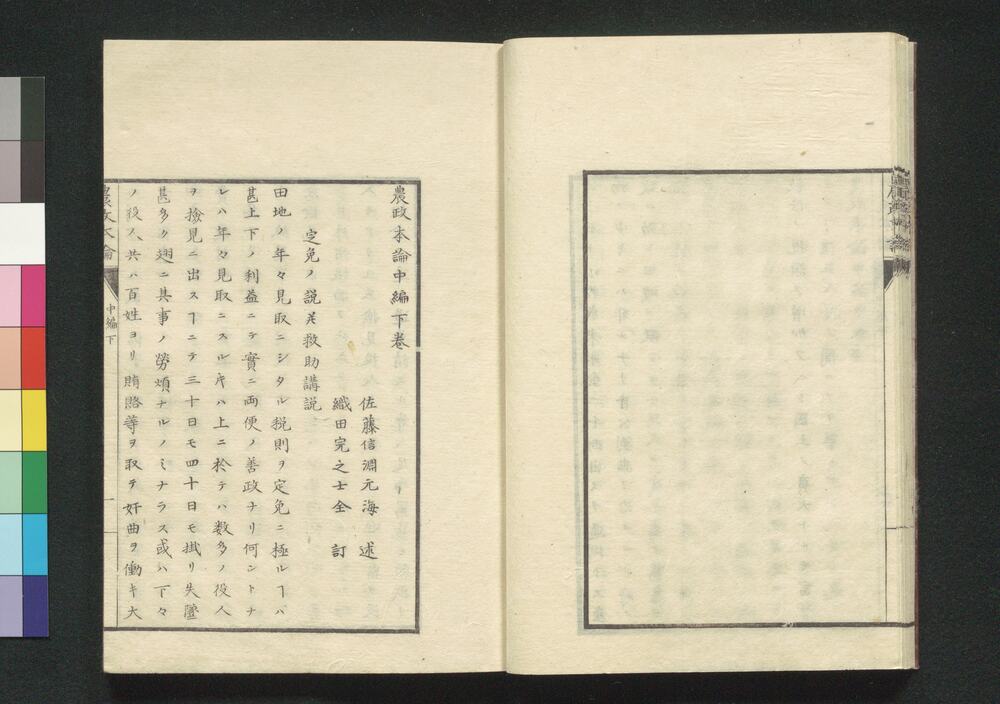 農政本論中編下卷
佐藤信淵元海 述
織田完之士全 訂
定免ノ説并救助講説
田地ノ年々見取ニシタル税則ヲ定免ニ極ルヿハ
甚上下ノ利益ニテ實ニ両便ノ善政ナリ何ントナ
レハ年々見取ニスル𪜈ハ上ニ於テハ数多ノ役人
ヲ撿見ニ出スヿニテ三十日モ四十日モ掛リ失墜
甚多ク廻ニ其事ノ勞煩ナルノミナラス或ハ下々
ノ役人共ハ百姓ヨリ賄賂等ヲ取テ奸曲ヲ働キ大
農政本論
中編下
一